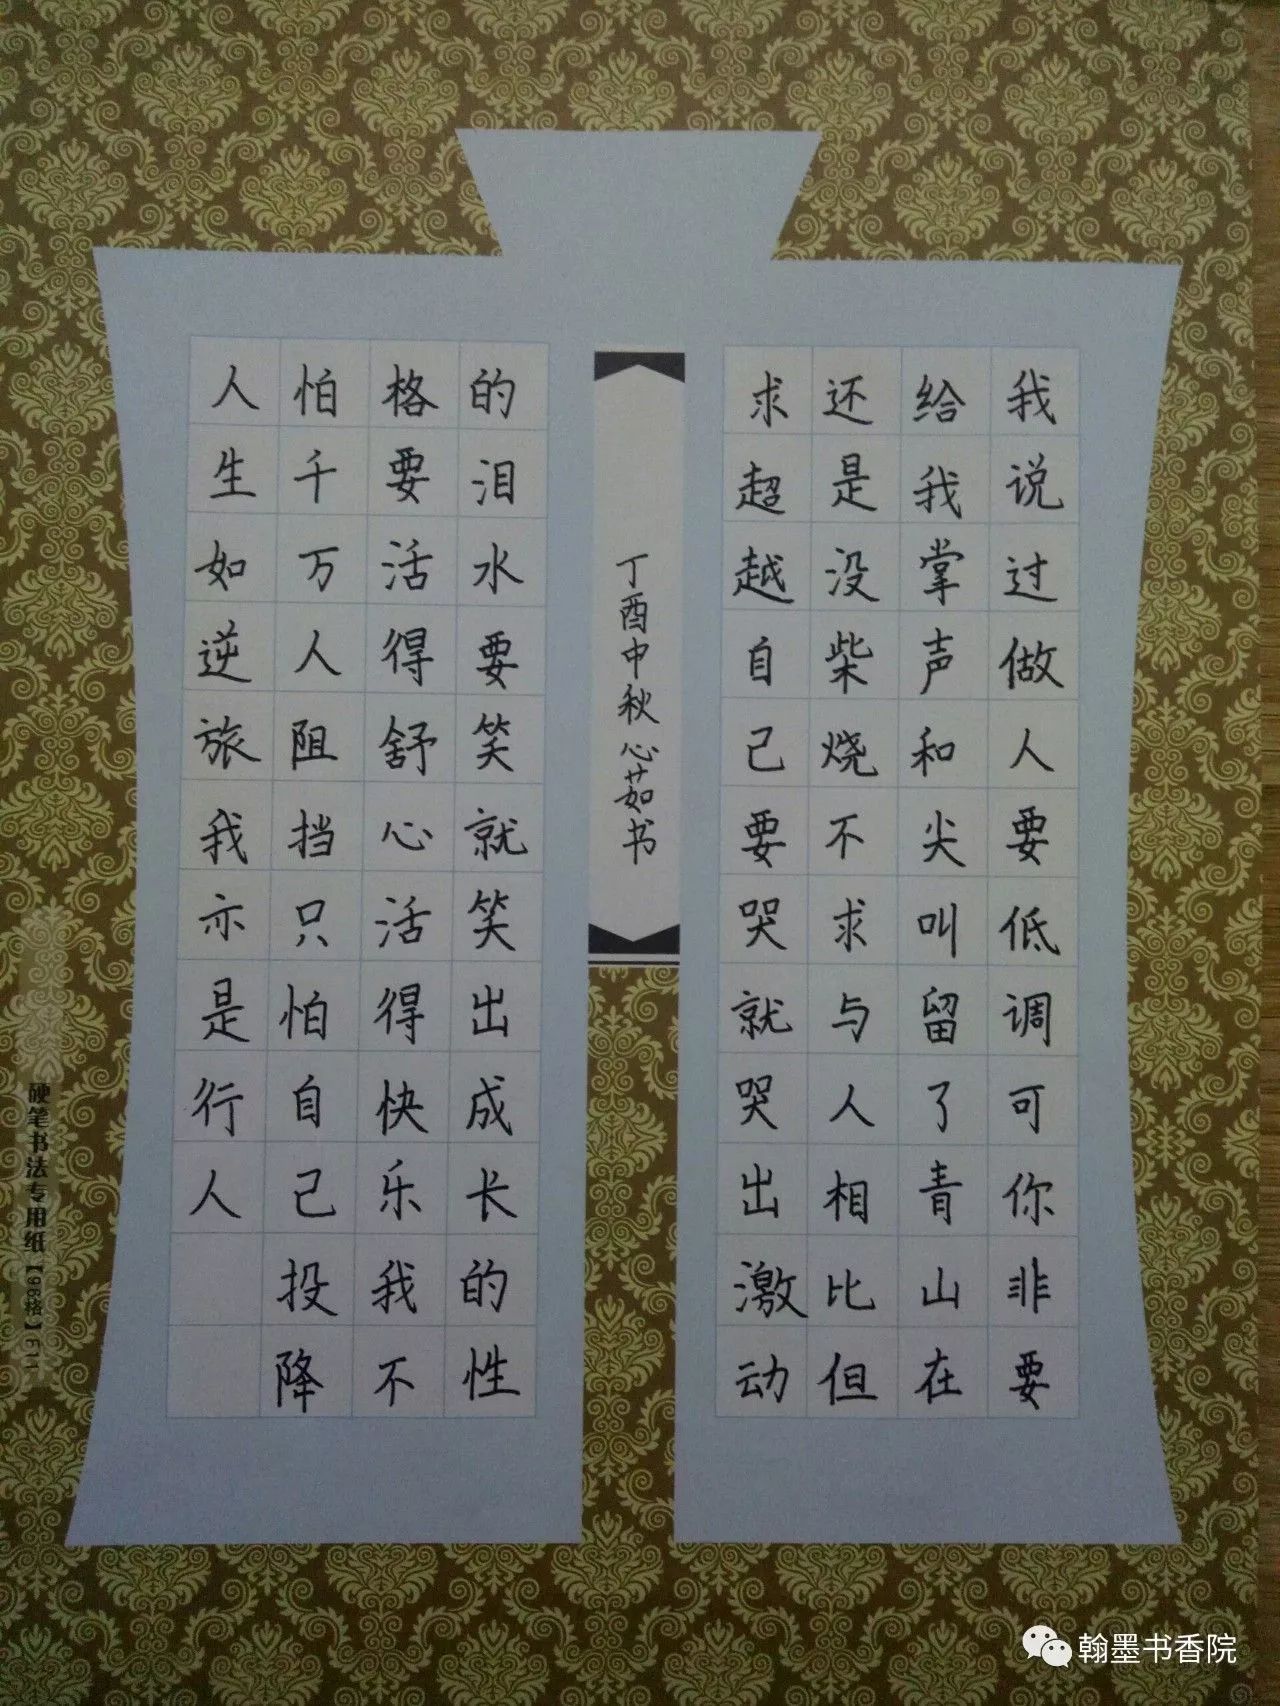 我说过做人要低调可你非要
给我掌声和尖叫留了青山在
还是没柴烧不求与人相比但
求超越自己要哭就哭出激动
的泪水要笑就笑出成长的性
格要活得舒心活得快乐我不
怕千万人阻挡只怕自己投降
人生如逆旅我亦是行人
丁酉中秋心茹书
硬笔书法专用纸【96格】E11
翰墨书香院